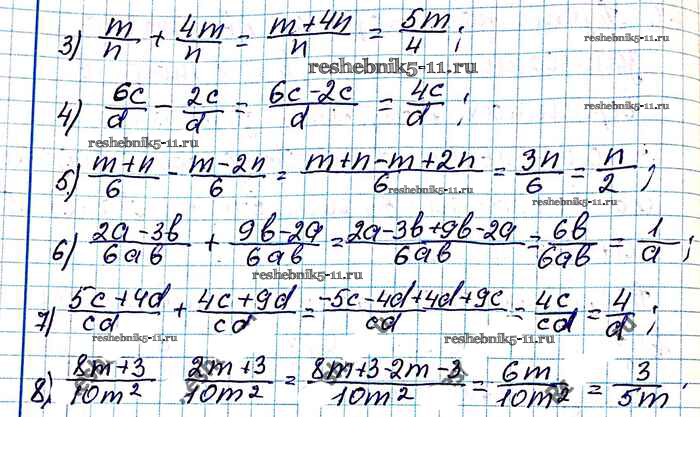 3) m/n + 4m/n = (m+4n)/n = 5m/4 ;
reshebnik5-11.ru
reshebnik5-11.ru
4) 6c/d - 2c/d = (6c-2c)/d = 4c/d ;
reshebnik5-11.ru
reshebnik5-11.ru
5) (m+n)/6 - (m-2n)/6 = (m+n-m+2n)/6 = 3n/6 = n/2 ;
reshebnik5-11.ru
reshebnik5-11.ru
6) (2a-3b)/6ab + (9b-2a)/6ab = (2a-3b+9b-2a)/6ab = 6b/6ab = 1/a ;
reshebnik5-11.ru
7) (5c+4d)/cd + (4c+9d)/cd = (-5c-4d+4d+9c)/cd = 4c/cd = 4/d ;
reshebnik5-11.ru
8) (8m+3)/10m² (2m+3)/10m² = (8m+3-2m-3)/10m² = 6m/10m² = 3/5m